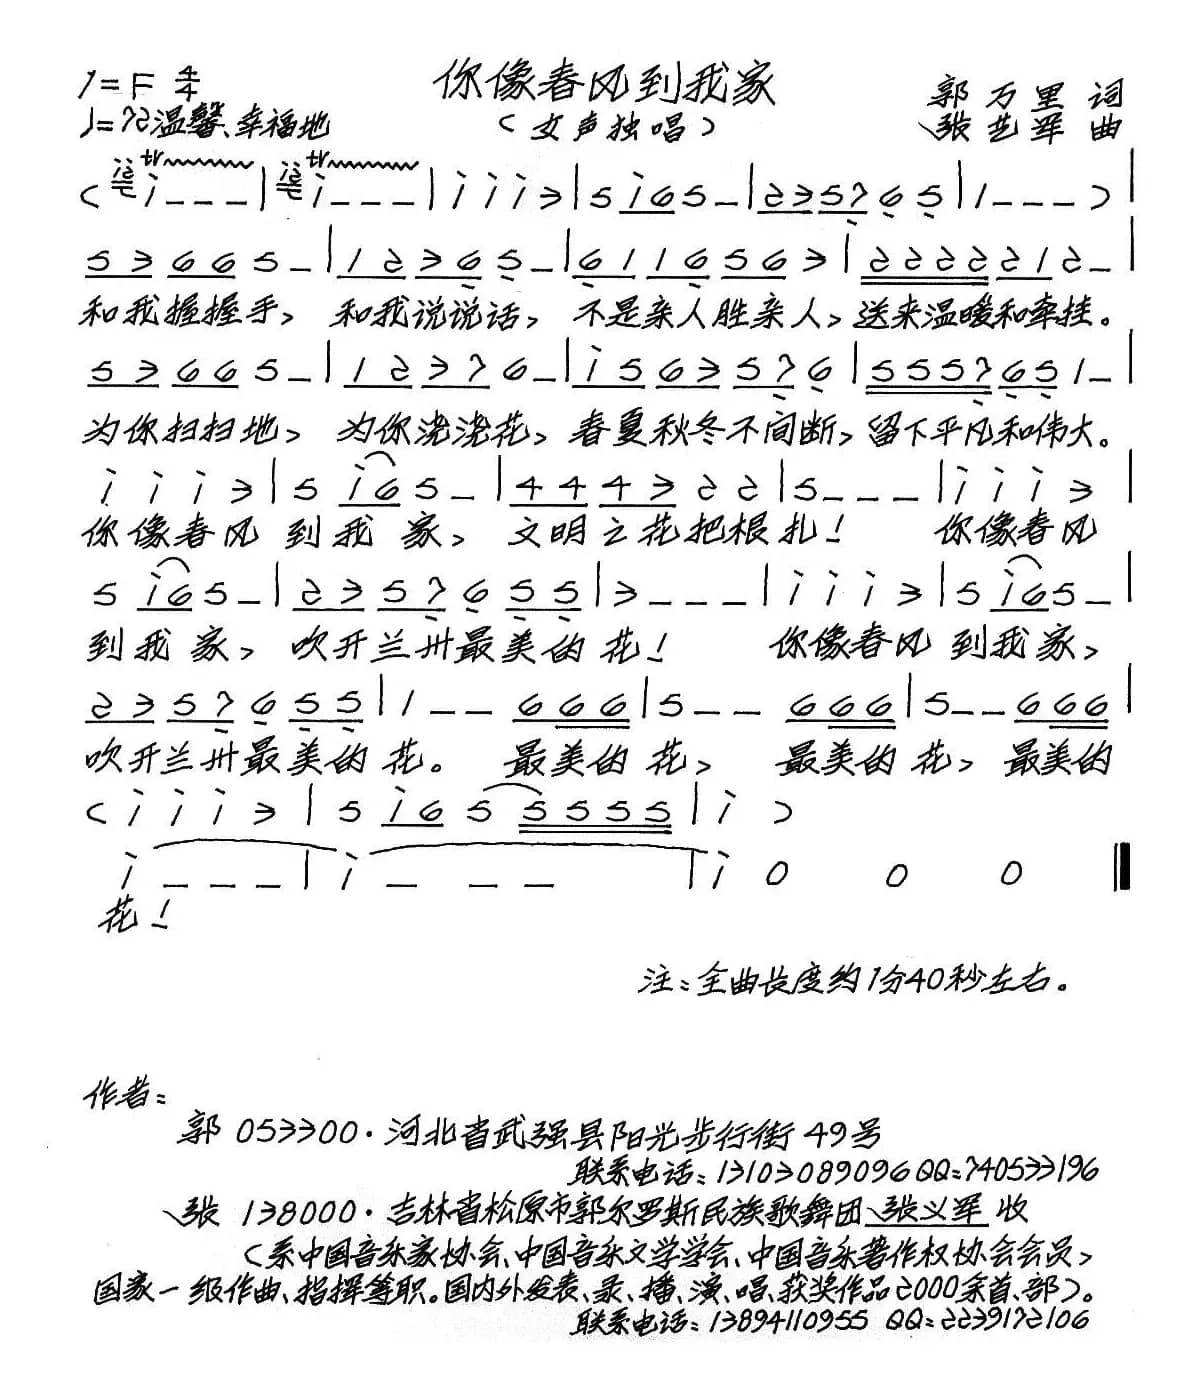 你像春风到我家
1=F 4/4
郭万里 词
♩=72 温馨、幸福地
（女声独唱）
张艺军 曲
( i - - - | i - - - | i i i 3 | 5 i 6 5 - | 2 3 5 7 6 5 | 1 - - - )
5 3 6 6 5 - | 1 2 3 6 5 - | 6 1 1 6 5 6 3 | 2 2 2 2 2 1 2 - |
和我握握手， 和我说说话， 不是亲人胜亲人，送来温暖和牵挂。
5 3 6 6 5 - | 1 2 3 7 6 - | i 5 6 3 5 7 6 | 5 5 5 7 6 5 1 - |
为你扫扫地， 为你浇浇花，春夏秋冬不间断，留下平凡和伟大。
i i i 3 | 5 i 6 5 - | 4 4 4 3 2 2 | 5 - - - | i i i 3 |
你像春风 到我 家， 文明之花把根扎！ 你像春风
5 i 6 5 - | 2 3 5 7 6 5 5 | 3 - - - | i i i 3 | 5 i 6 5 - |
到我 家， 吹开兰州最美的 花！ 你像春风 到我家，
2 3 5 7 6 5 5 | 1 - - 6 6 6 | 5 - - 6 6 6 | 5 - - 6 6 6 |
吹开兰州最美的 花。 最美的 花， 最美的 花，最美的
( i i i 3 | 5 i 6 5 5 5 5 5 | i )
i - - - | i - - - | i 0 0 0
花！
注：全曲长度约1分40秒左右。
作者：
郭 053300·河北省武强县阳光步行街49号
联系电话：13103089096 QQ：740533196
张 138000·吉林省松原市郭尔罗斯民族歌舞团 张义军 收
（系中国音乐家协会、中国音乐文学学会、中国音乐著作权协会会员，
国家一级作曲、指挥等职。国内外发表、录、播、演、唱、获奖作品2000余首、部）。
联系电话：13894110955 QQ：2239172106